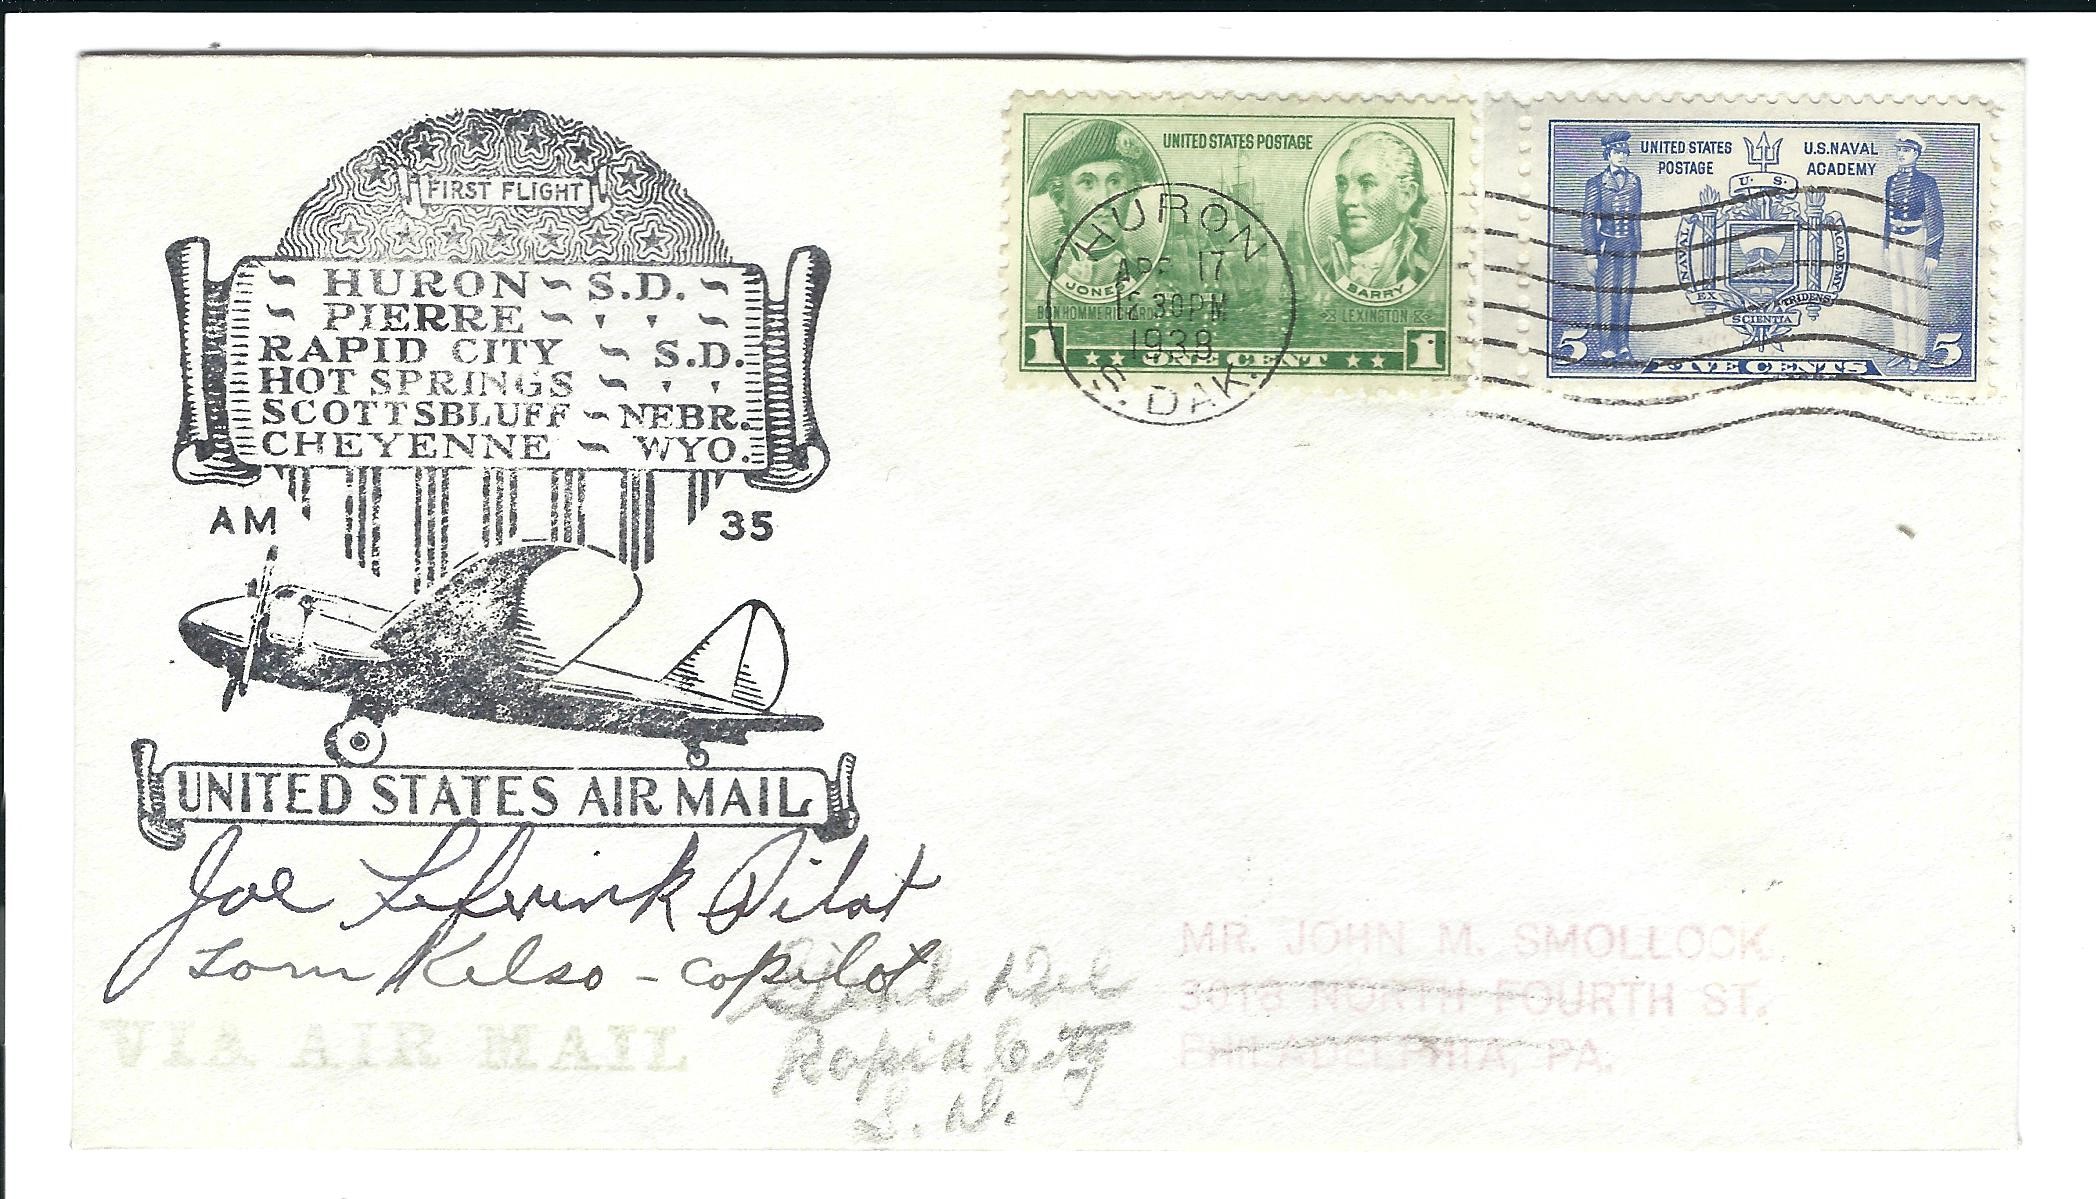 FIRST FLIGHT
~ HURON ~ S.D. ~
~ PIERRE ~ " " ~
RAPID CITY ~ S.D.
HOT SPRINGS ~ " "
SCOTTSBLUFF ~ NEBR.
CHEYENNE ~ WYO.
AM 35
UNITED STATES AIR MAIL
Joe Pilot
Tom Kelso - copilot
VIA AIR MAIL
Rapid City
S. D.
UNITED STATES POSTAGE
JONES
BARRY
BON HOMME RICHARD
LEXINGTON
1 ONE CENT 1
HURON
APR 17
12 30 PM
1938
S. DAK.
UNITED STATES POSTAGE
U.S. NAVAL ACADEMY
U. S.
NAVAL ACADEMY
EX TRIDENS
SCIENTIA
5 FIVE CENTS 5
MR. JOHN M. SMOLLOCK
3018 NORTH FOURTH ST.
PHILADELPHIA, PA.